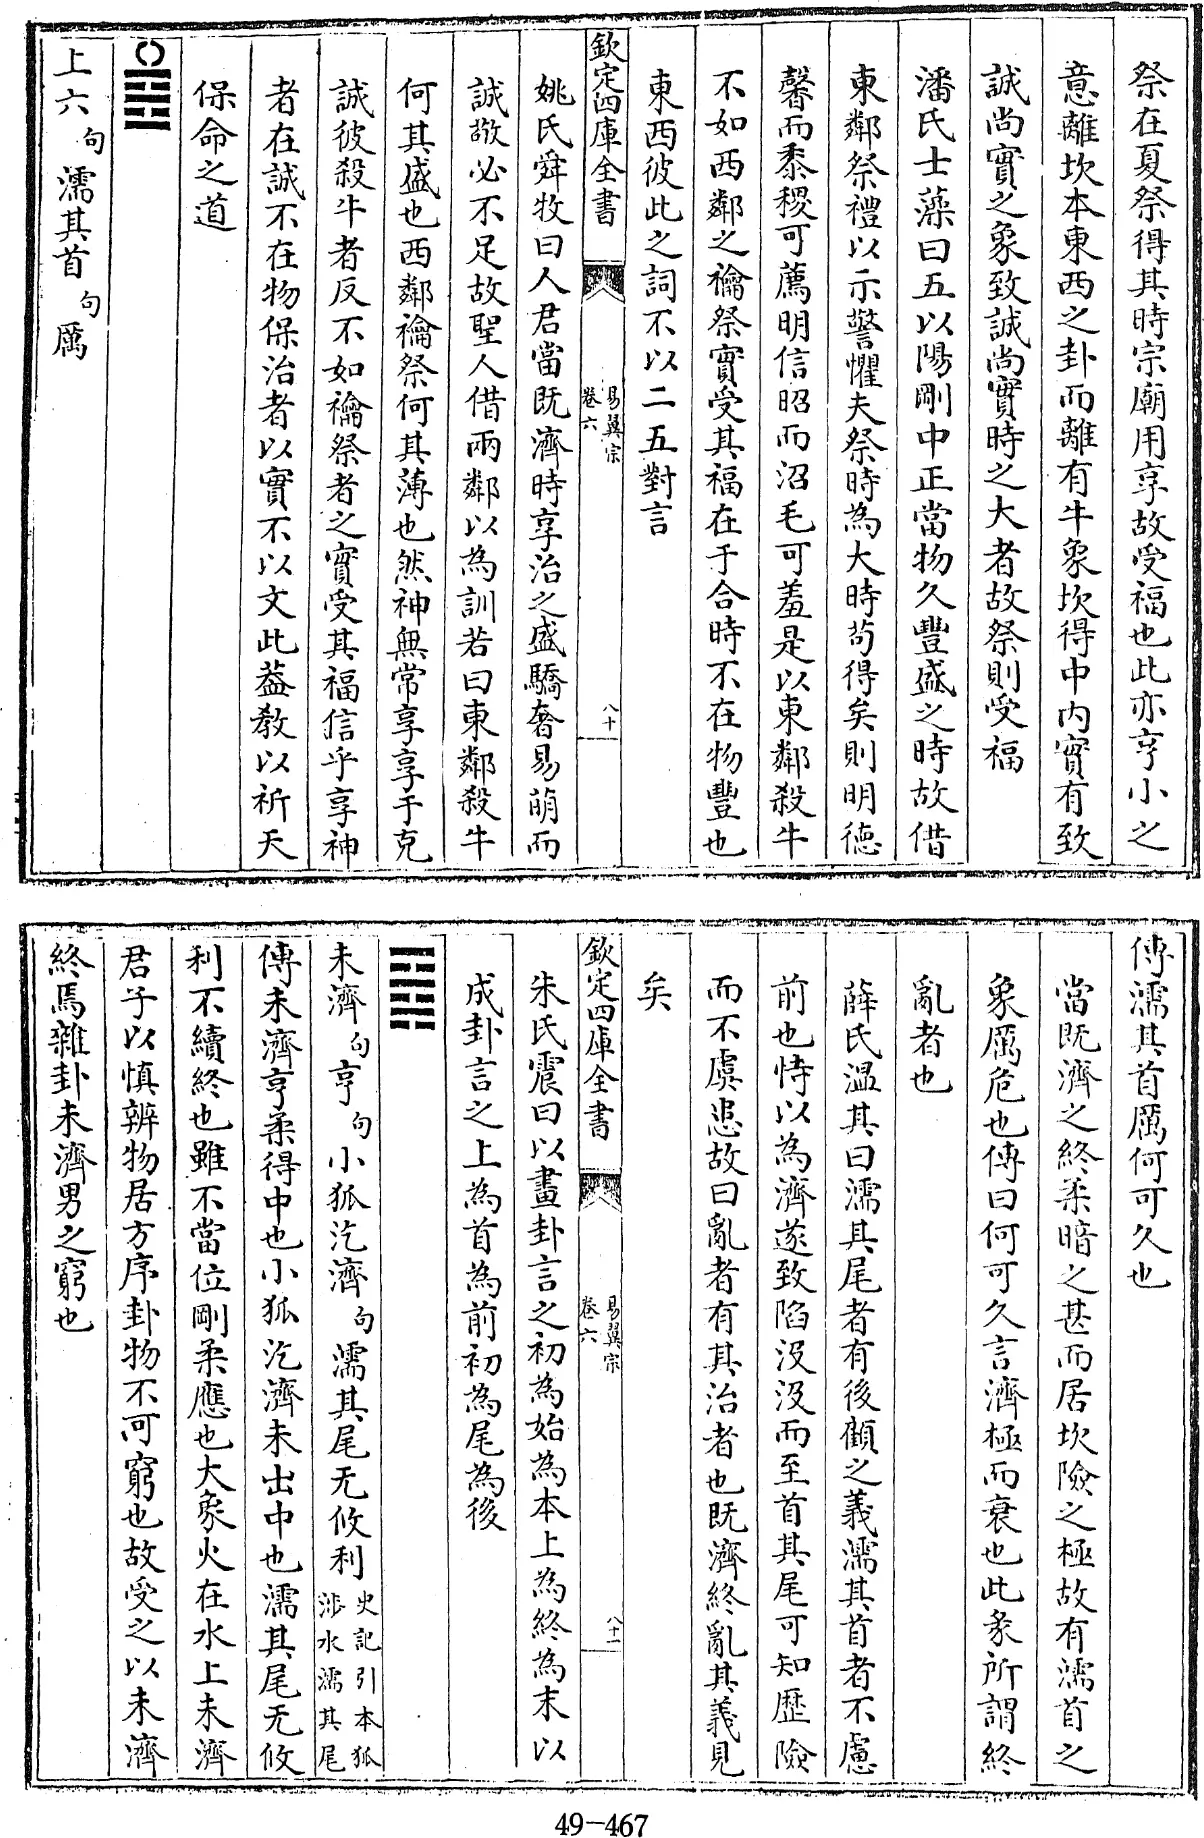 祭在夏祭得其時宗廟用享故受福也此亦亨小之
意離坎本東西之卦而離有牛象坎得中内實有致
誠尚實之象致誠尚實時之大者故祭則受福
潘氏士藻曰五以陽剛中正當物久豐盛之時故借
東鄰祭禮以示警懼夫祭時為大時茍得矣則明徳
馨而黍稷可薦明信昭而沼毛可羞是以東鄰殺牛
不如西鄰之禴祭實受其福在于合時不在物豐也
東西彼此之詞不以二五對言
欽定四庫全書
易翼宗
卷六
八十
姚氏舜牧曰人君當既濟時享治之盛驕奢易萌而
誠敬必不足故聖人借兩鄰以為訓若曰東鄰殺牛
何其盛也西鄰禴祭何其薄也然神無常享享于克
誠彼殺牛者反不如禴祭者之實受其福信乎享神
者在誠不在物保治者以實不以文此葢教以祈天
保命之道
上六句濡其首句厲
傳濡其首厲何可久也
當既濟之終柔暗之甚而居坎險之極故有濡首之
象厲危也傳曰何可久言濟極而衰也此彖所謂終
亂者也
薛氏温其曰濡其尾者有後顧之義濡其首者不慮
前也恃以為濟遂致陷没没而至首其尾可知歴險
而不虞患故曰亂者有其治者也既濟終亂其義見
矣
欽定四庫全書
易翼宗
卷六
八十一
朱氏震曰以畫卦言之初為始為本上為終為末以
成卦言之上為首為前初為尾為後
未濟句亨句小狐汔濟句濡其尾无攸利史記引本狐
涉水濡其尾
傳未濟亨柔得中也小狐汔濟未出中也濡其尾无攸
利不續終也雖不當位剛柔應也大象火在水上未濟
君子以慎辨物居方序卦物不可窮也故受之以未濟
終焉雜卦未濟男之窮也
49-467